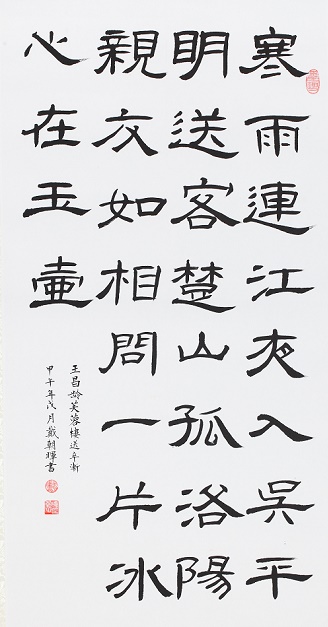 寒雨連江夜入吳平
明送客楚山孤洛陽
親友如相問一片冰
心在玉壺
王昌齡芙蓉樓送辛漸
甲午年戊月戴朝書